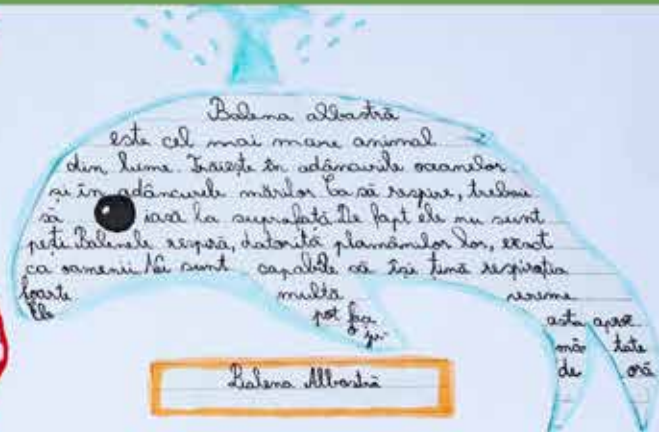 Balena albastră
este cel mai mare animal
din lume. Trăiește în adâncurile oceanelor
și în adâncurile mărilor Ca să respire, trebuie
să iasă la suprafață. De fapt ele nu sunt
pești. Balenele respiră, datorită plamânilor lor, exact
ca oamenii. sunt capabile să își țină respirația
foarte multă vreme
Ele pot face asta
ju
mă tate
de oră
Balena Albastră